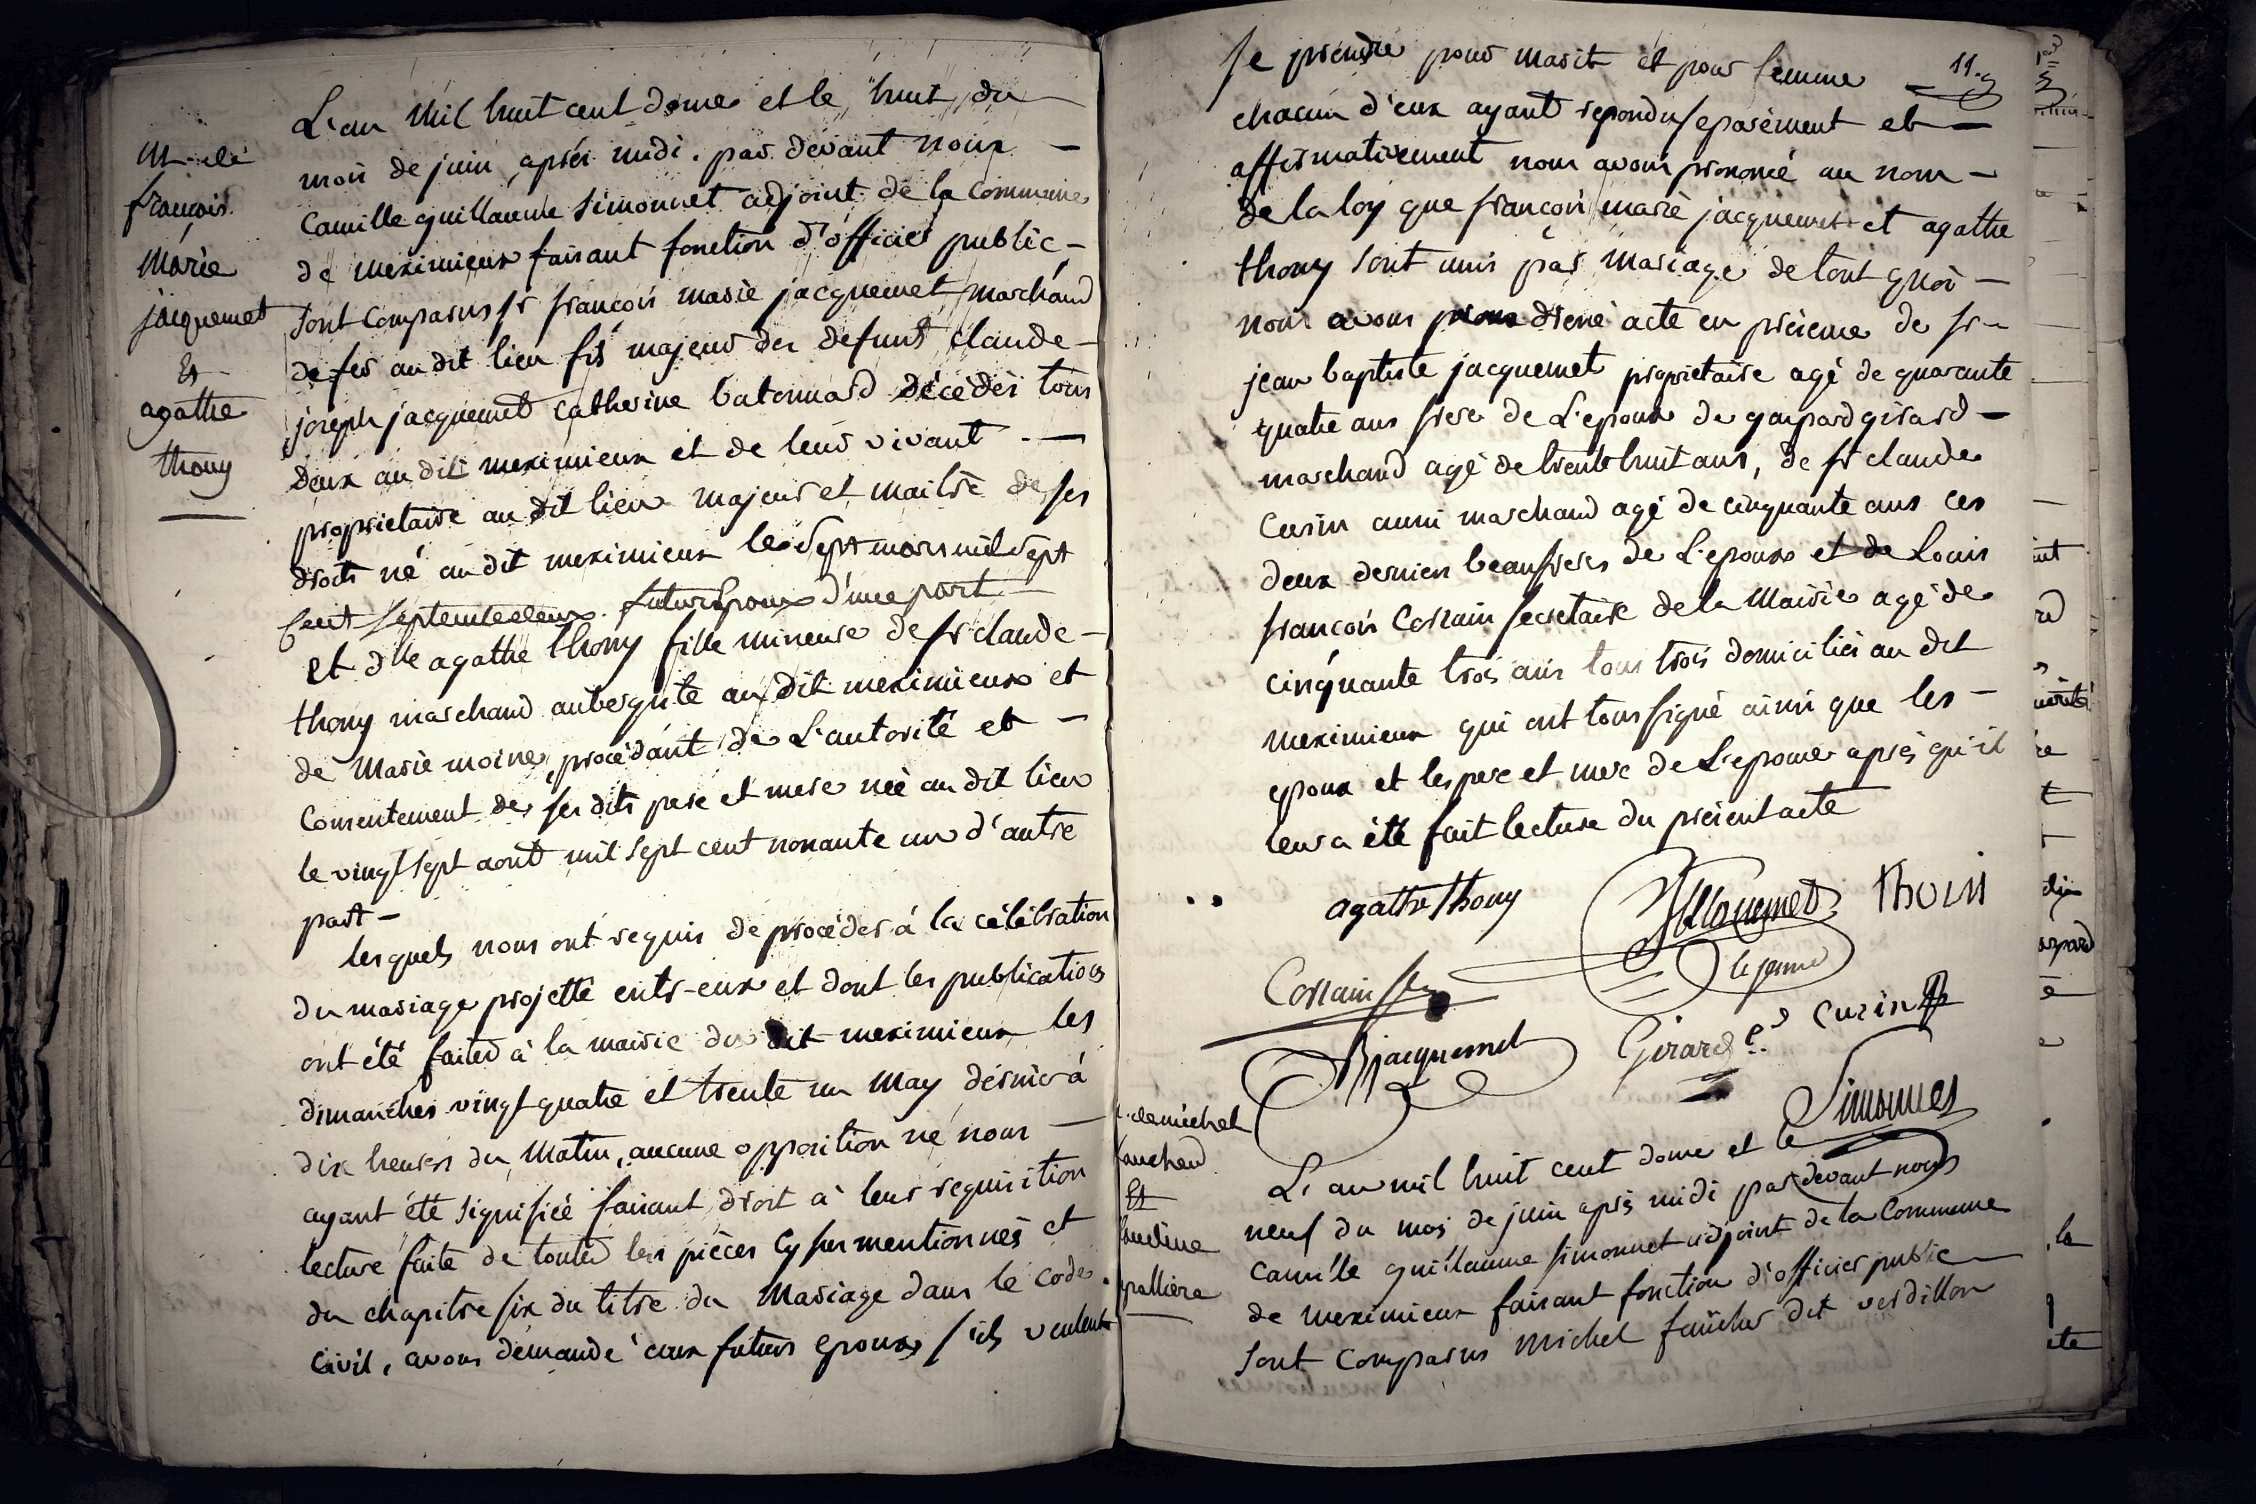 M. de
françois
Marie
jacquemet
Et
agathe
thony
L'an Mil huit cent douze et le huit du
mois de juin après midi. par devant nous
Camille guillaume simonnet adjoint de la Commune
de meximieux faisant fonction d'officier public,
sont comparus sr françois marie jacquemet marchand
de fer au dit lieu fils majeur des defunt claude
joseph jacquemet catherine batonnard décédés tous
deux au dit meximieux et de leur vivant
proprietaire au dit lieu majeur et maitre de ses
droits né au dit meximieux le sept mars mil sept
Cent septentedeux. futur Epoux d'une part
et dlle agathe thony fille mineure de sr claude
thony marchand aubergiste au dit meximieux et
de Marie moine, procédant de L'autorité et
Consentement de ses dits pere et mere née au dit lieu
le vingt sept aout mil sept cent nonante un d'autre
part
lesquels nous ont requis de procéder à la célébration
du mariage projetté entr-eux et dont les publications
ont été faites à la mairie du dit meximieux les
dimanches vingt quatre et trente un May dernier à
dix heures du Matin, aucune opposition ne nous
ayant été signifiée faisant droit à leur requisition
lecture faite de toutes les pièces cy sus mentionnés et
du chapitre six du titre du Mariage dans le code
civil, avons demandé aux futurs epoux s'ils veulent
se prendre pour marit et pour femme 11.
chacun d'eux ayant repondu séparément et
affirmativement nous avons prononcé au nom
de la loy que françois marie jacquemet et agathe
thony sont unis par mariage de tout quoi
nous avons dréné acte en présence de sr
jean baptiste jacquemet proprietaire agé de quarante
quatre ans frere de L'epoux de gaspard girard
marchand agé de trente huit ans, de sr claude
Cusin aussi marchand agé de cinquante ans ces
deux derniers beaufreres de L'epoux et de Louis
françois Corsain secretaire de la Mairie agé de
cinquante trois ans tous trois domiciliés au dit
meximieux qui ont tous signé ainsi que les
epoux et les pere et mere de L'epouse après qu'il
leur a été fait lecture du présent acte
agathe thony
thoni
le jeune
Corsain
Bjacquemet
Girard
Curin
Simonnet
michel
Et
L'an mil huit cent douze et le
neuf du mois de juin après midi par devant nous
camille guillaume simonnet adjoint de la Commune
de meximieux faisant fonction d'officier public
sont comparus michel faucher dit verdillon